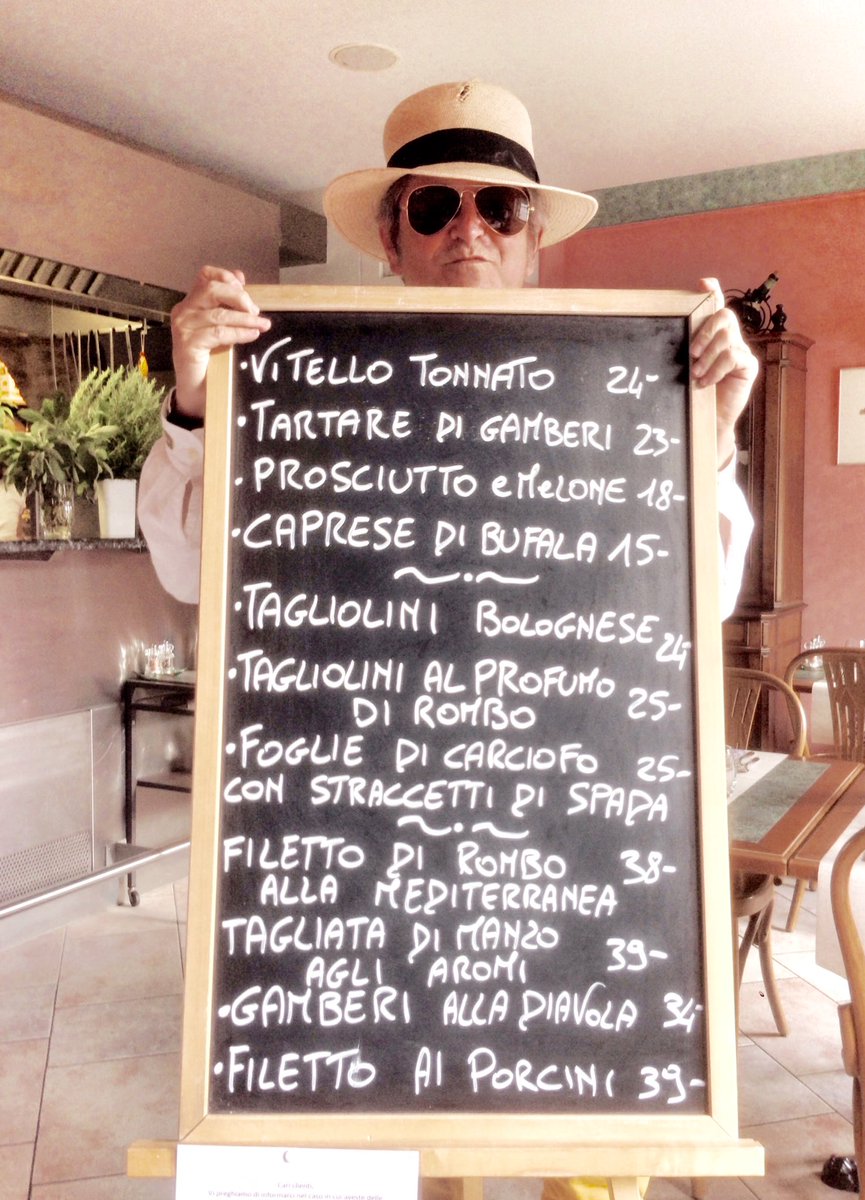 ·VITELLO TONNATO 24-
·TARTARE DI GAMBERI 23-
·PROSCIUTTO e MeLONE 18-
·CAPRESE DI BUFALA 15-
~·~
·TAGLIOLINI BOLOGNESE 24-
·TAGLIOLINI AL PROFUMO 25-
DI ROMBO
·FOGLIE DI CARCIOFO 25-
CON STRACCETTI DI SPADA
~·~
FILETTO DI ROMBO 38-
ALLA MEDITERRANEA
TAGLIATA DI MANZO 39-
AGLI AROMI
·GAMBERI ALLA DIAVOLA 34-
·FILETTO AI PORCINI 39-
Cari clienti,
Vi preghiamo di informarci nel caso in cui aveste delle